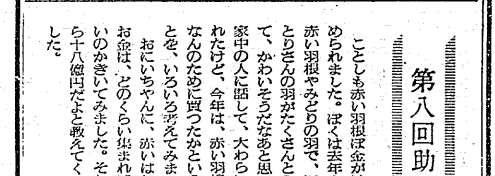 第八回助
ことしも赤い羽根ぼ金が
められました。ぼくは去年
赤い羽根やみどりの羽で、
とりさんの羽がたくさんと
て、かわいそうだなあと思
家中の人に話して、大わら
れたけど、今年は、赤い羽
なんのために買つたかとい
とを、いろいろ考えてみま
おにいちゃんに、赤いは
お金は、どのくらい集まれ
いのかきいてみました。そ
ら十八億円だよと教えてく
した。